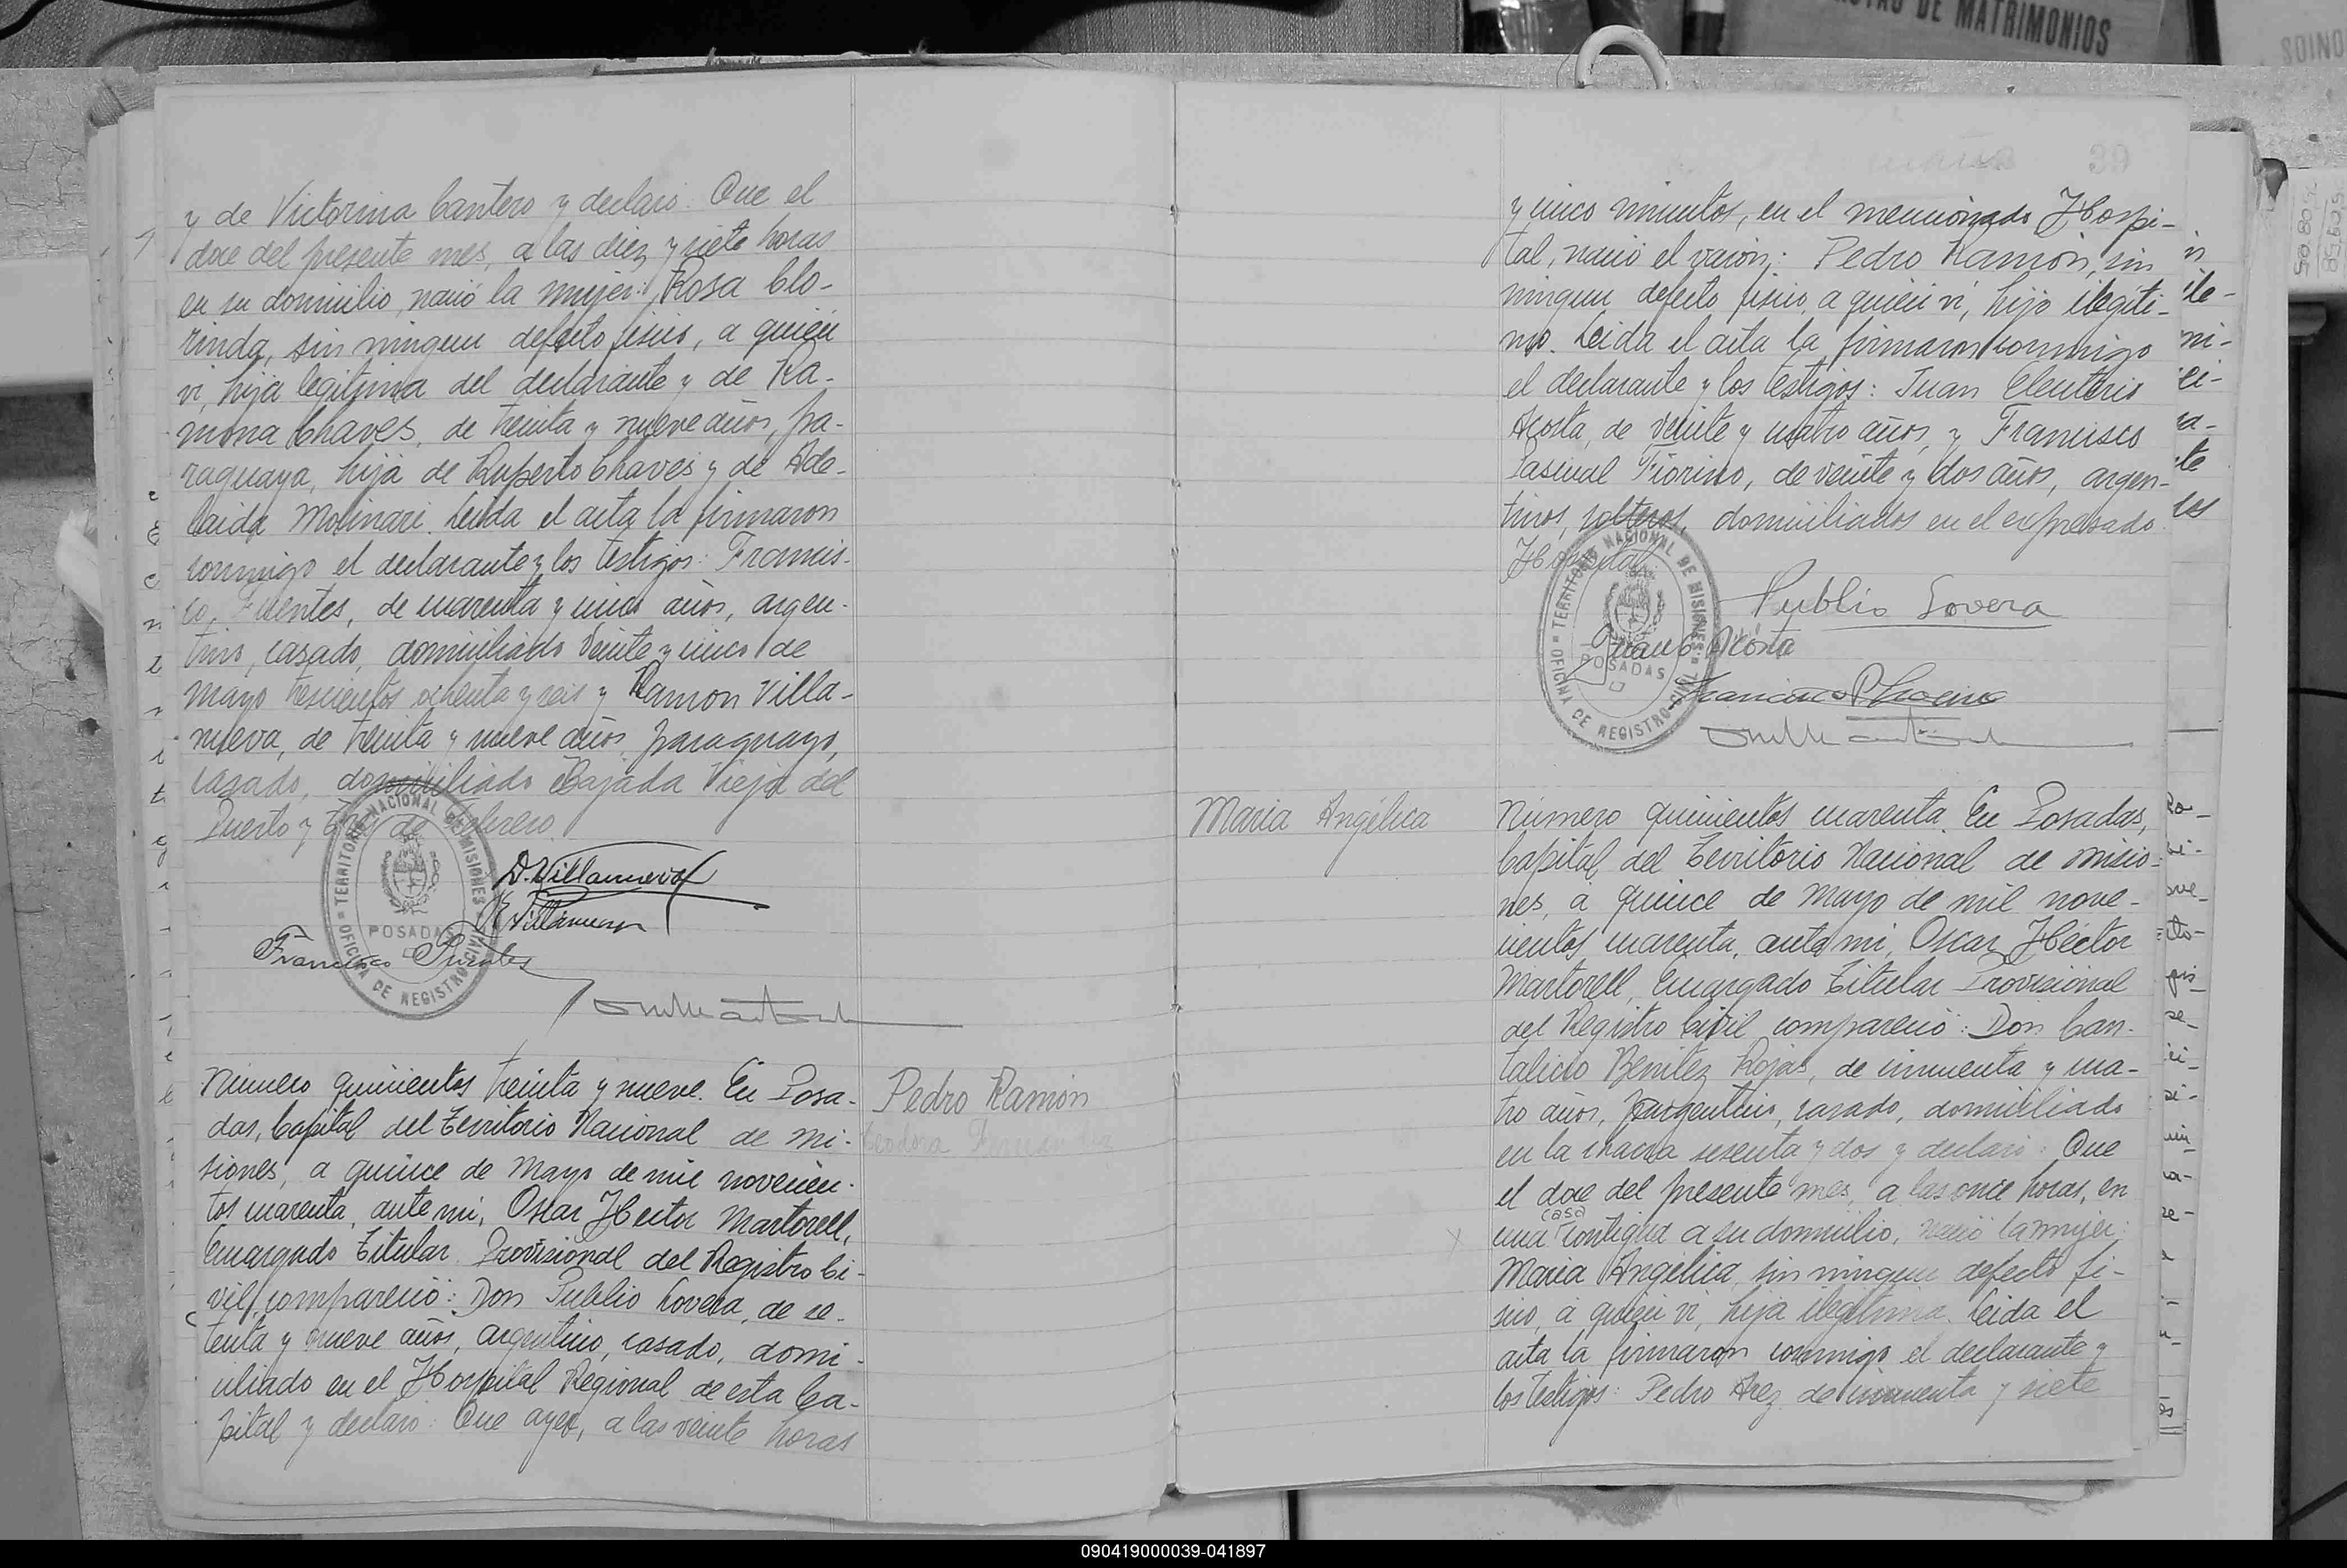 ACTAS DE MATRIMONIOS
y de Victorina Cantero y declaró: Que el
doce del presente mes, a las diez y siete horas
en su domicilio, nació la mujer: Rosa Clo-
rinda, sin ningun defecto fisico, a quien
vi, hija legitima del declarante y de Ra-
mona Chaves, de treinta y nueve años, pa-
raguaya, hija de Ruperto Chaves y de Ade-
laida Molinari. Leida el acta la firmaron
conmigo el declarante y los testigos: Francis-
co Fuentes, de cuarenta y cinco años, argen-
tino, casado, domiciliado Veinte y cinco de
mayo trescientos ochenta y seis y Ramon Villa-
nueva, de treinta y nueve años, paraguayo,
casado, domiciliado Bajada Vieja del
Puerto y Tres de Febrero.
TERRITORIO NACIONAL DE MISIONES
POSADAS
OFICINA DE REGISTRO CIVIL
D. Villanueva
R Villanueva
Francisco Fuentes
Número quinientos treinta y nueve. En Posa-
das, Capital del Territorio Nacional de Mi-
siones, a quince de Mayo de mil novecien-
tos cuarenta, ante mi, Oscar Hector Martorell,
Encargado Titular Provisional del Registro Ci-
vil, compareció: Don Publio Lovera, de se-
tenta y nueve años, argentino, casado, domi-
ciliado en el Hospital Regional de esta Ca-
pital y declaró: Que ayer, a las veinte horas
Pedro Ramón
39
y cinco minutos, en el mencionado Hospi-
tal, nació el varón: Pedro Ramón, sin
ningun defecto fisico, a quien vi, hijo ilegiti-
mo. Leida el acta la firmaron conmigo
el declarante y los testigos: Juan Eleuterio
Acosta, de veinte y cuatro años, y Francisco
Pascual Fiorino, de veinte y dos años, argen-
tinos, solteros, domiciliados en el expresado
Hospital.
TERRITORIO NACIONAL DE MISIONES
POSADAS
OFICINA DE REGISTRO CIVIL
Publio Lovera
Juan E Acosta
Francisco P Fiorino
María Angélica
Número quinientos cuarenta. En Posadas,
Capital del Territorio Nacional de Misio-
nes, a quince de Mayo de mil nove-
cientos cuarenta, ante mi, Oscar Héctor
Martorell, Encargado Titular Provisional
del Registro Civil compareció: Don Can-
talicio Benitez Rojas, de cincuenta y cua-
tro años, argentino, casado, domiciliado
en la chacra sesenta y dos y declaró: Que
el doce del presente mes, a las once horas, en
casa
una contigua a su domicilio, nació la mujer:
María Angélica, sin ningun defecto fi-
sico, a quien vi, hija ilegitima. Leida el
acta la firmaron conmigo el declarante y
los testigos: Pedro Arez, de cincuenta y siete
090419000039-041897